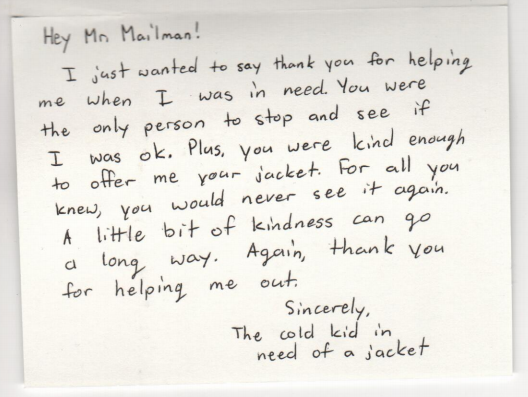 Hey Mr. Mailman!
I just wanted to say thank you for helping
me when I was in need. You were
the only person to stop and see if
I was ok. Plus, you were kind enough
to offer me your jacket. For all you
knew, you would never see it again.
A little bit of kindness can go
a long way. Again, thank you
for helping me out.
Sincerely,
The cold kid in
need of a jacket